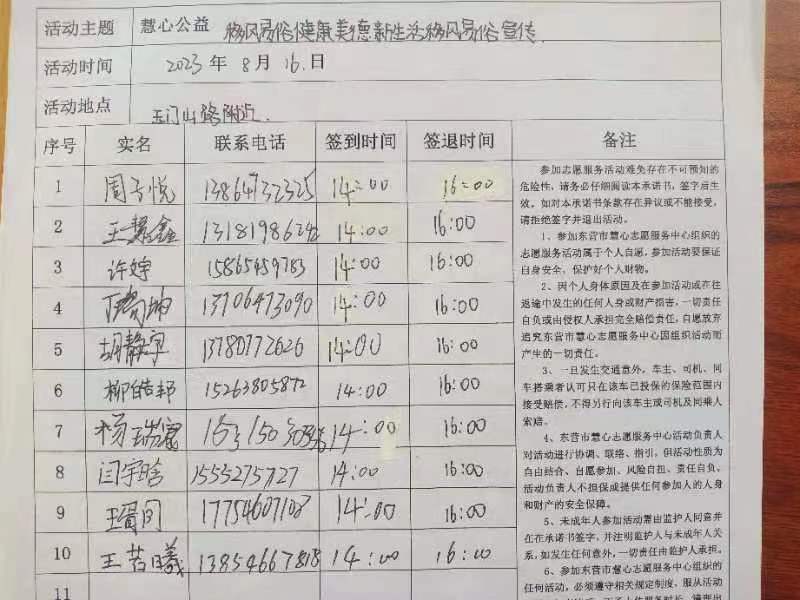 活动主题 慧心公益 移风易俗健康美德新生活移风易俗宣传
活动时间 2023年8月16.日
活动地点 玉门山路附近.
序号 实名 联系电话 签到时间 签退时间 备注
1 周子悦 13864732325 14:00 16:00
2 王慧鑫 14:00 16:00
3 许婷 15865459783 14:00 16:00
4 13706473090 14:00 16:00
5 胡静宇 13780772626 14:00 16:00
6 柳皓邦 15263805872 14:00 16:00
7 杨瑞霞 14:00 16:00
8 闫宇晗 15552757727 14:00 16:00
9 17754607108 14:00 16:00
10 王若曦 13854667818 14:00 16:00
11
参加志愿服务活动难免存在不可预知的
危险性，请务必仔细阅读本承诺书，签字后生
效。如对本承诺书条款存在异议或不能接受，
请拒绝签字并退出活动。
1、参加东营市慧心志愿服务中心组织的
志愿服务活动属于个人自愿。参加活动要保证
自身安全，保护好个人财物。
2、因个人身体原因及在参加活动或在往
返途中发生的任何人身或财产损害，一切责任
自负或由侵权人承担完全赔偿责任，自愿放弃
追究东营市慧心志愿服务中心因组织活动而
产生的一切责任。
3、一旦发生交通意外，车主、司机、同
车搭乘者认可只在该车已投保的保险范围内
接受赔偿，不得另行向该车主或司机及同乘人
索赔。
4、东营市慧心志愿服务中心活动负责人
对活动进行协调、联络、指引，但活动性质为
自由结合、自愿参加、风险自担、责任自负、
活动负责人不担保或提供任何参加人的人身
和财产的安全保障。
5、未成年人参加活动需由监护人同意并
在在承诺书签字，并注明监护人与未成年人关
系，如发生任何意外，一切责任由监护人承担。
6、参加东营市慧心志愿服务中心组织的
任何活动，必须遵守相关规定制度，服从活动